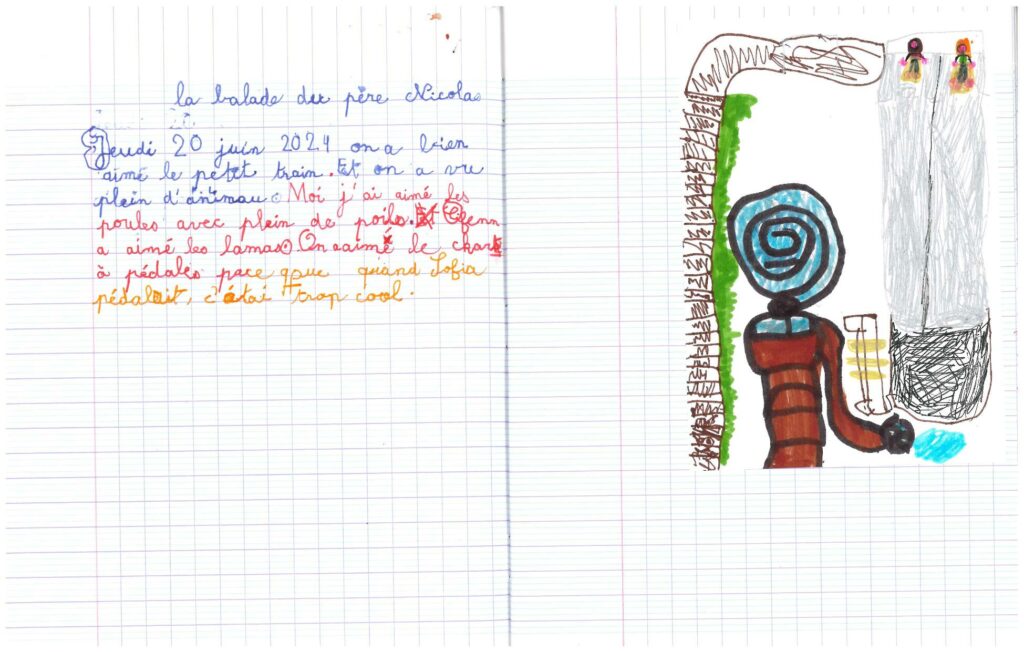 la balade du père Nicolas
Jeudi 20 juin 2024 on a bien
aimé le petet train. Et on a vu
plein d'animau. Moi j'ai aimé les
poules avec plein de poils.
a aimé les lamas. On a aimé le char
à pédales pace que quand Sofia
pédalait, c'étai trop cool.